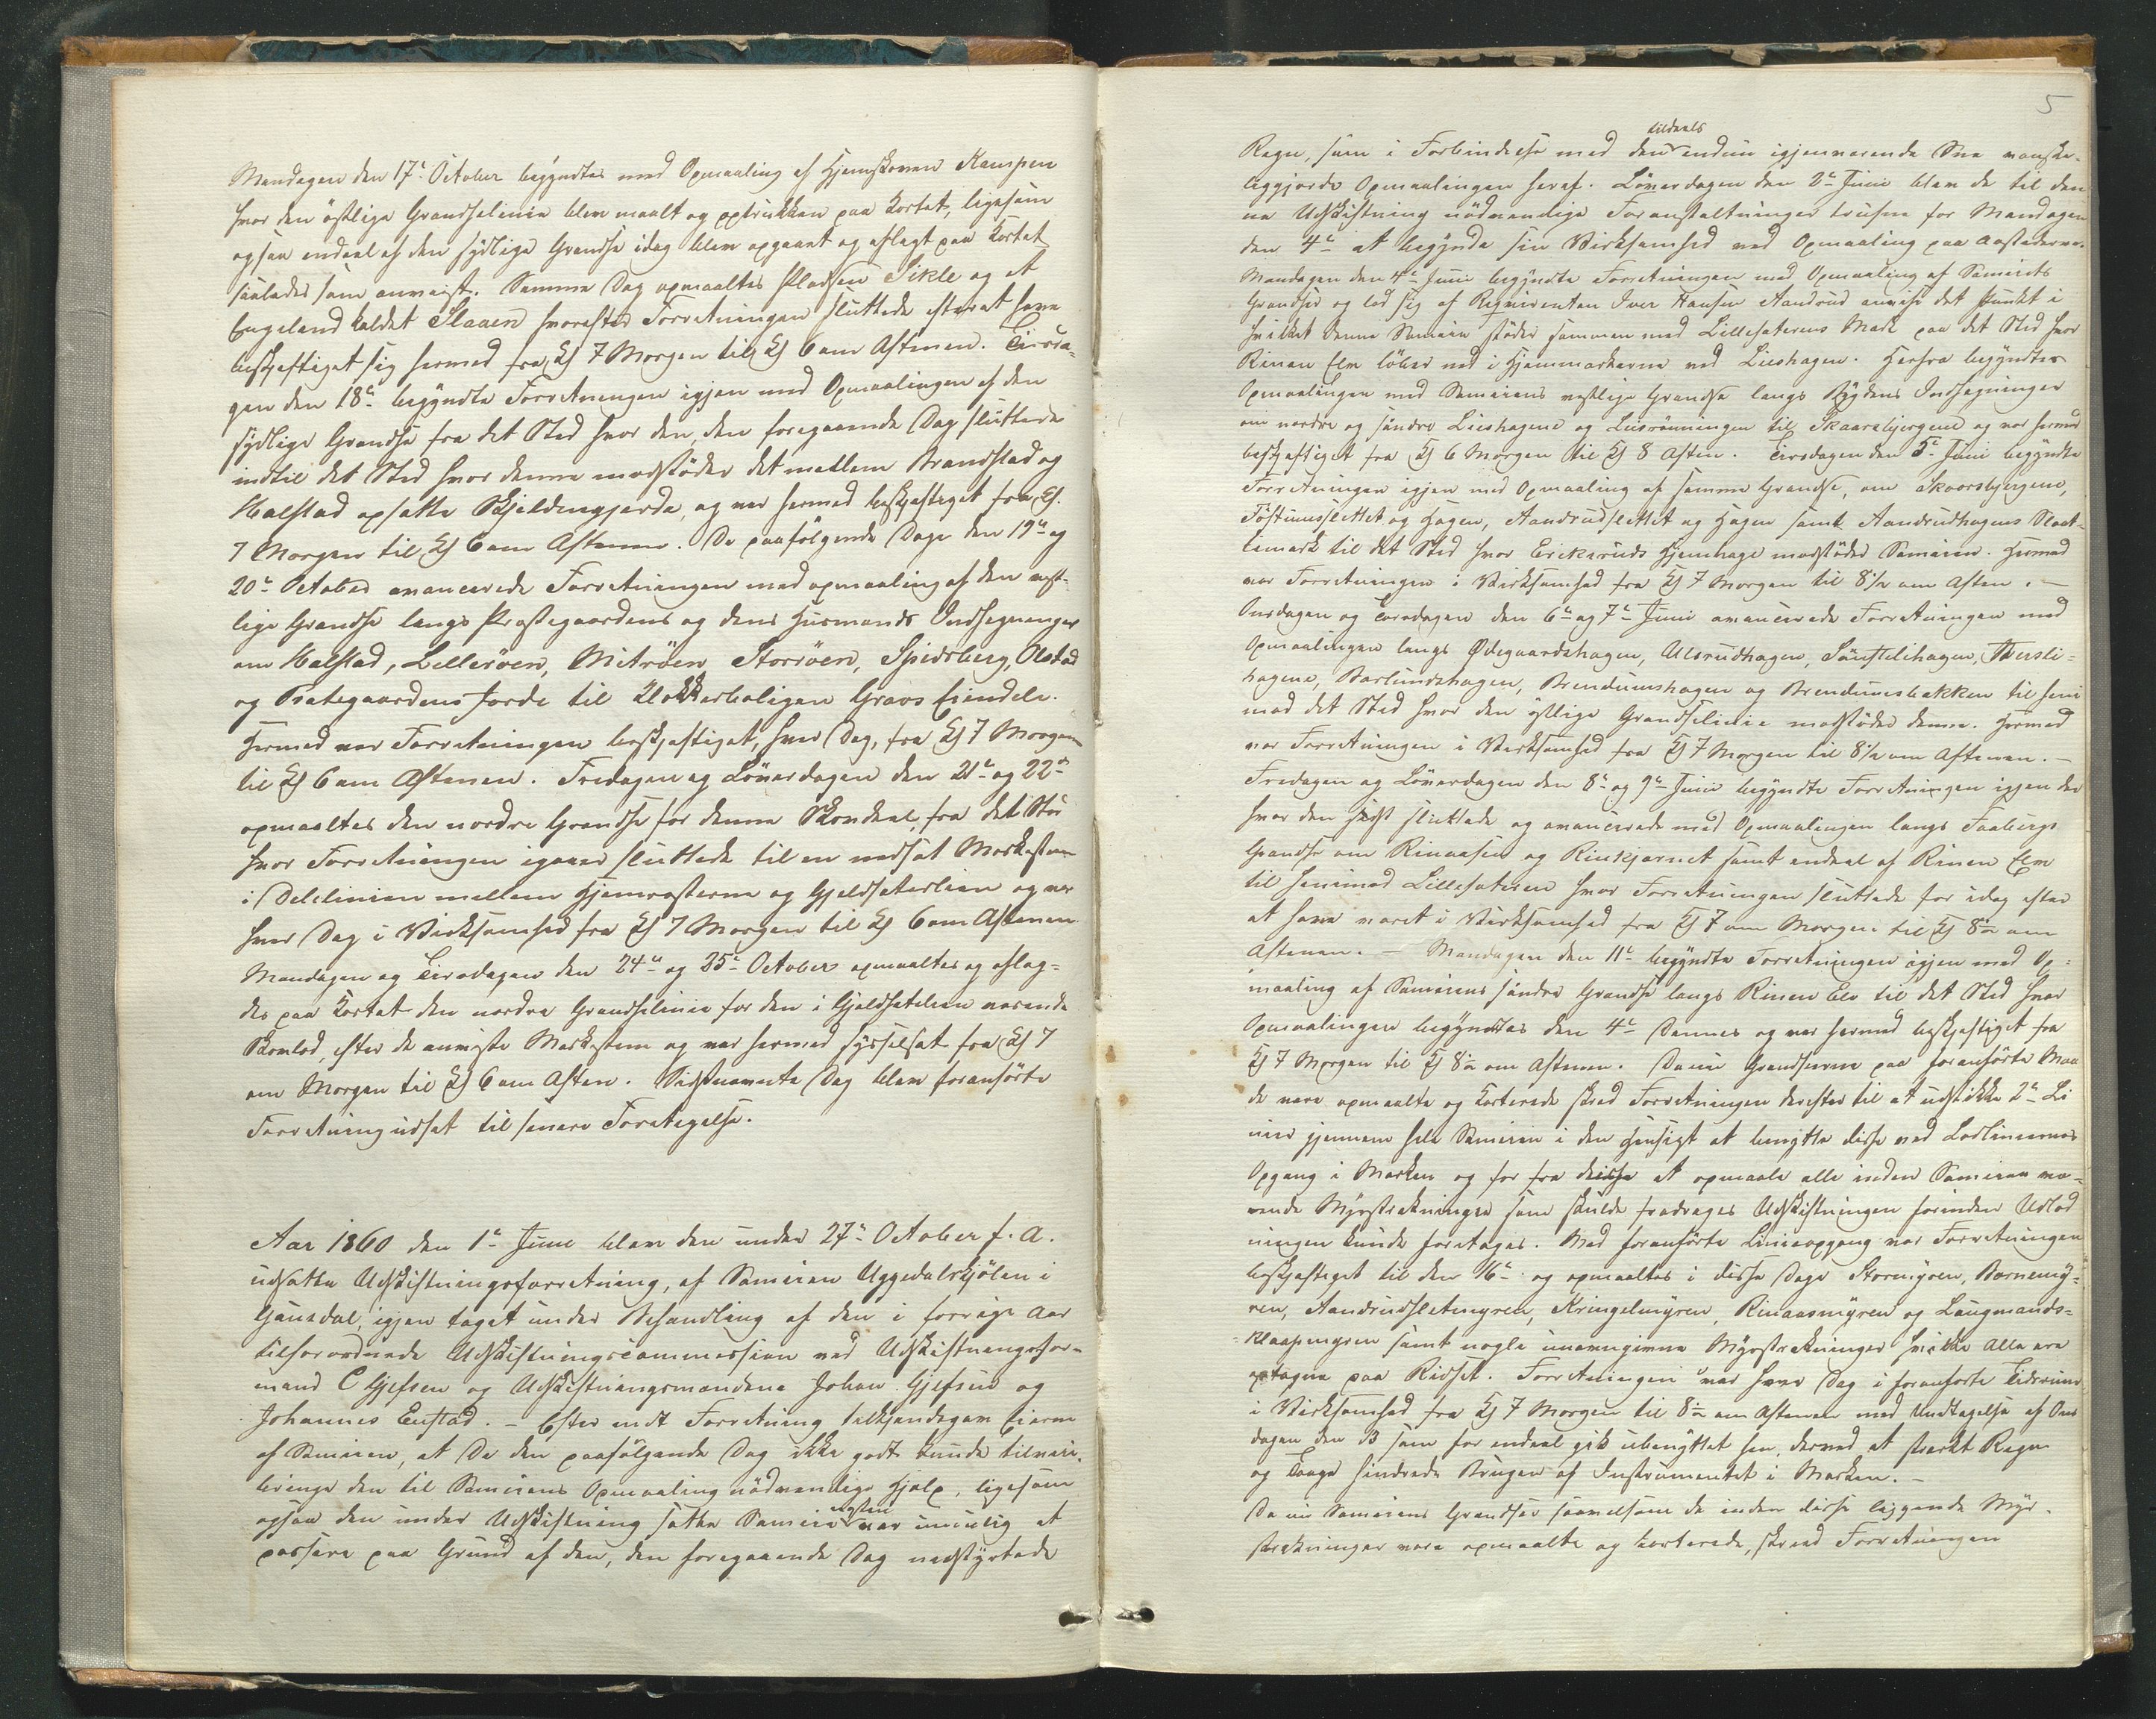 Mandagen den 17de October begyndtes med Opmaaling af Hjemskoven Kampen
hvor den östlige Grændselinie blev maalt og optrukken paa Kortet, ligesom
ogsaa endeel af den sydlige Grændse idag blev opgaaet og aflagt paa Kortet
saaledes som anviist. Samme Dag opmaaltes Pladsen Sikle og et
Engeland kaldet Slaaen hvorefter Forretningen sluttede efterat have
beskjeftiget sig hermed fra Kl 7 Morgen til Kl 6 om Aftenen. Tirsda-
gen den 18de begyndte Forretningen igjen med Opmaalingen af den
sydlige Grændse fra det Sted hvor den, den foregaaende Dag sluttede
indtil det Sted hvor denne modstöder det mellem Brandstad og
Malstad opsatte Skjeldengjerde, og var hermed beskjeftiget fra Kl.
7 Morgen til Kl 6 om Aftenen. De paafölgende Dage den 19de og
20de October avancerede Forretningen med opmaaling af den vest-
lige Grændse langs Præstegaardens og dens Huusmænds Indhegninger
om Malstad, Lilleröen, Mitröen, Storröen, Spidsberg, Olstad
og Præstegaardens Jorde til Klokkerboligen Gravs Eiendele.
Hermed var Forretningen beskjeftiget, hver Dag, fra Kl 7 Morgen
til Kl 6 om Aftenen. Fredagen og Löverdagen den 21de og 22de
opmaaltes den nordre Grændse for denne Skovdeel, fra det Sted
hvor Forretningen igaar sluttede til en nedsat Merkesteen
i Delelinien mellem Hjemrasterne og Gjeldsæterlien og var
hver Dag i Virksomhed fra Kl 7 Morgen til Kl 6 om Aftenen
Mandagen og Tirsdagen den 24de og 25de October opmaaltes og aflag-
des paa Kortet den nordre Grændselinie for den i Gjeldsæterlien værende
Skovlod, efter de anviste Merkesteen og var hermed sysselsat fra Kl 7
om Morgen til Kl 6 om Aften. Sidstnævnte Dag blev foranförte
Forretning udsat til senere Foretagelse.
Aar 1860 den 1ste Juni blev den under 27de October f. A.
udsatte Udskiftningsforretning, af Sameien Uggedalskjölen i
Gausdal, igjen taget under Behandling af den i forrige Aar
tilforordnede Udskiftningscommession ved Udskiftningsfor-
mand C Gjefsen og Udskiftningsmændene Johan Gjefsen og
Johannes Enstad. - Efter endt Forretning tilkjendegav Eierne
af Sameien, at De den paafölgende Dag ikke godt kunde tilveie-
bringe den til Sameiens Opmaaling nödvendige Hjælp, ligesom
ogsaa den under Udskiftning satte Sameie næsten var umulig at
passere paa Grund af den, den foregaaende Dag nedstyrtede
5
Regn, som i Forbindelse med den tildeels endnu igjenværende Snee vanske-
liggjorde Opmaalingen heraf. Löverdagen den 2de Juni blev de til den-
ne Udskiftning nödvendige Foranstaltninger trufne for Mandagen
den 4de at begynde sin Virksomhed med Opmaaling paa Aastederne.
Mandagen den 4de Juni begyndte Forretningen med Opmaaling af Sameiets
Grændser og lod sig af Reqvirenten Iver Hansen Aandrud anvise det Punkt i
hvilket denne Sameie stöder sammen med Lillesæterens Mark paa det Sted hvor
Rinen Elv löber ned i Hjemmarkerne ved Lieshagen. Herfra begyndtes
Opmaalingen med Sameiens vestlige Grændse langs Bygdens Indhegninger
om nordre og söndre Lieshagene og Liesrönningen til Skaarsbjergene og var hermed
beskjeftiget fra Kl 6 Morgen til Kl 8 Aften. Tirsdagen den 5te Juni begyndte
Forretningen igjen med Opmaaling af samme Grændse, om Skaarsbjergene,
Töstunsslettet og Hagen, Aandrudslettet og Hagen samt Aandrudhagens Slaat-
temark til det Sted hvor Eriksruds Hjemhage modstöder Sameien. Hermed
var Forretningen i Virksomhed fra Kl 7 Morgen til 8½ om Aften. -
Onsdagen og Torsdagen den 6te og 7de Juni avancerede Forretningen med
Opmaalingen langs Ödegaardshagen, Ulsrudhagen, Sönstelihagen, Thersli-
hagene, Barlundshagen, Brendumshagen og Brendumsbakken til hen-
mod det Sted hvor den östlige Grændselinie modstöder denne. Hermed
var Forretningen i Virksomhed fra Kl 7 Morgen til 8½ om Aftenen. -
Fredagen og Löverdagen den 8de og 9de Juni begyndte Forretningen igjen der
hvor den sidst sluttede og avancerede med Opmaalingen langs Faabergs
Grændse om Rinaasen og Rinkjærnet samt endeel af Rinen Elv
til henimod Lillesæteren hvor Forretningen sluttede for idag efter
at have været i Virksomhed fra Kl 7 om Morgen til Kl 8½ om
Aftenen. - Mandagen den 11te begyndte Forretningen igjen med Op-
maaling af Sameiens söndre Grændse langs Rinen Elv til det Sted hvor
Opmaalingen begyndtes den 4de Dennes og var hermed beskjeftiget fra
Kl 7 Morgen til Kl 8½ om Aftenen. Da nu Grændserne paa foranförte Maa-
de vare opmaalte og karterede skred Forretningen derefter til at udstikke 2de Li-
nier gjennem hele Sameien i den Hensigt at benytte disse ved Lodliniernes
Opgang i Marken og for fra disse at opmaale alle inden Sameien væ-
rende Myrstrekninger som skulde fradrages Udskiftningen forinden Udlod-
ningen kunde foretages. Med foranförte Linieopgang var Forretningen
beskjeftiget til den 16de og opmaaltes i disse Dage Stormyren, Bornemy-
ren, Aandrudsletmyren, Kringelmyren, Rinaasmyren og Laugmands-
klaapmyren samt nogle unævngivne Myrstrekninger hvilke alle ere
optagne paa Ridset. Forretningen var hver Dag i foranförte Tidsrum
i Virksomhed fra Kl 7 Morgen til 8½ om Aftenen med Undtagelse af Ons-
dagen den 13 som for endeel gik ubenyttet hen, derved at stærkt Regn
og Taage hindrede Brugen af Instrumentet i Marken. -
Da nu Sameiens Grændser saavelsom de inden disse liggende Myr-
strekninger vare opmaalte og karterede, skred Forretningen